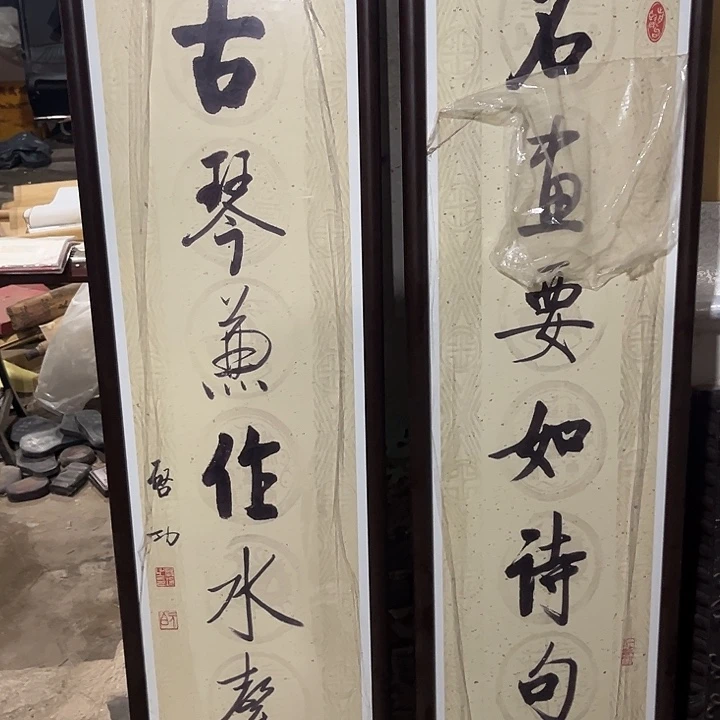 名画要如诗句
古琴兼作水声
启功